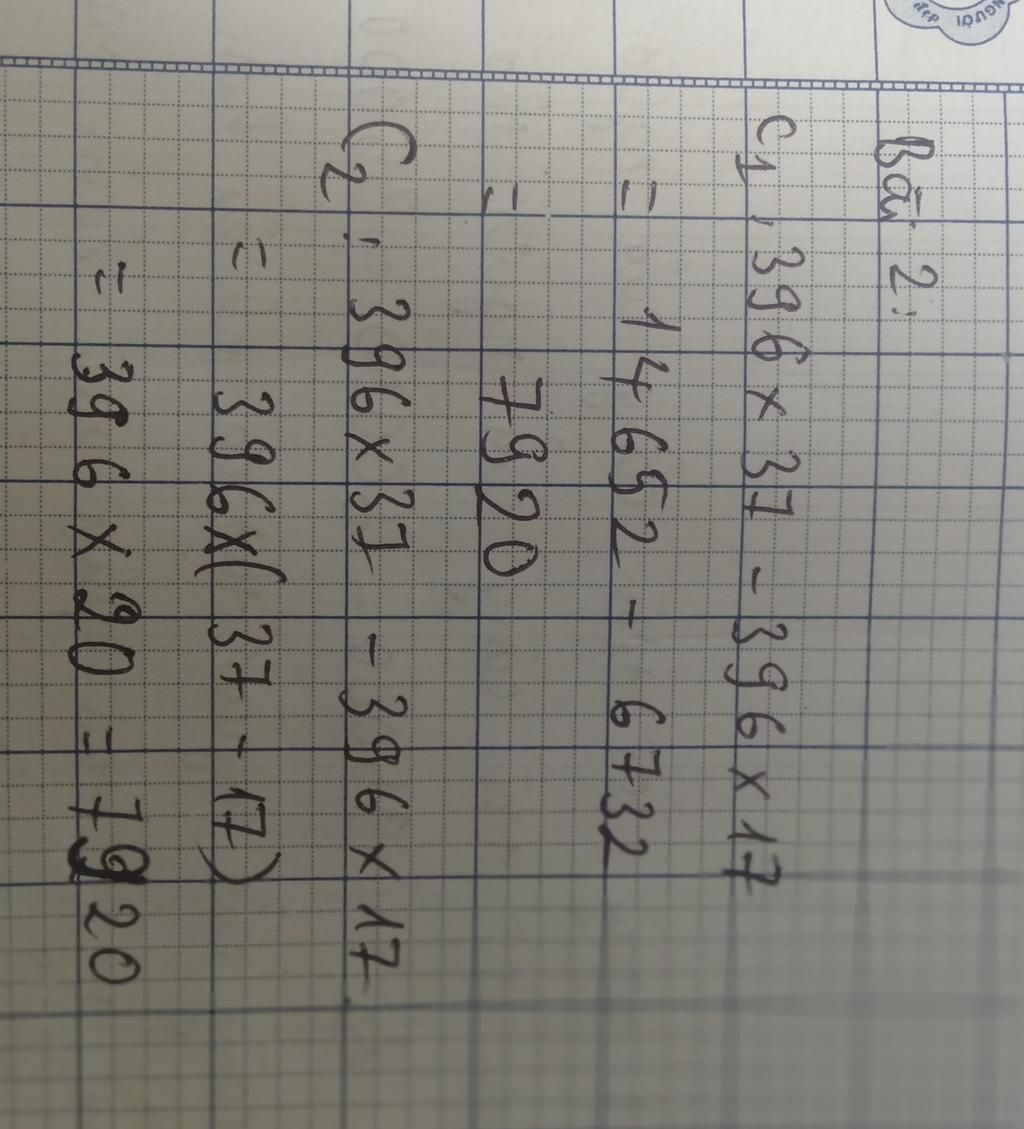 NGƯỜI
đẹp
Bài 2:
C1, 396 x 37 - 396 x 17
= 14652 - 6732
= 7920
C2, 396 x 37 - 396 x 17
= 396 x ( 37 - 17)
= 396 x 20 = 7920